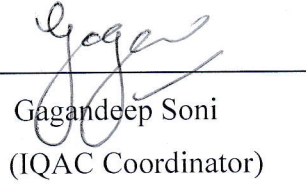 Gagan
Gagandeep Soni
(IQAC Coordinator)